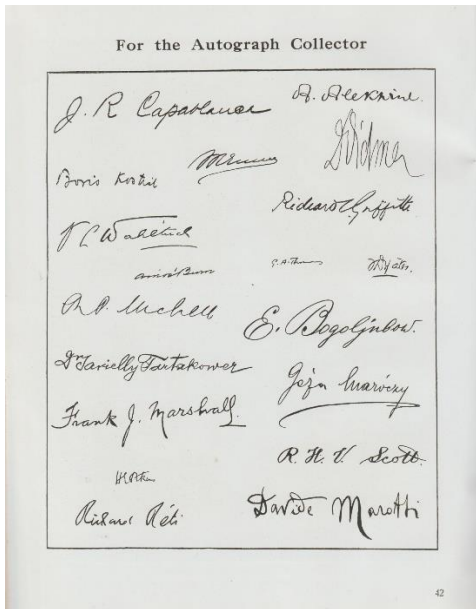 For the Autograph Collector
J. R. Capablanca
A. Alekhine.
Boris Kostić
Dr Vidmar
Richard Griffith
Amos Burn
G. A. Thomas
R. P. Michell
E. Bogoljubow.
Dr Savielly Tartakower
Géza Maróczy
Frank J. Marshall.
R. H. V. Scott.
Richard Réti
Davide Marotti
42